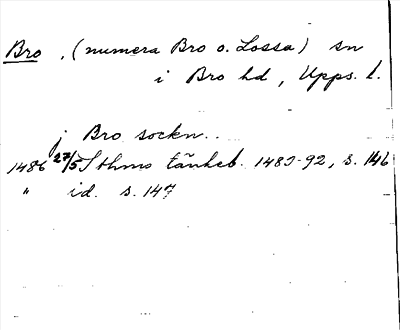 Bro, (numera Bro o. Lossa) sn
i Bro hd, Upps. l.
j Bro sockn..
1486 27/5 Sthms tänkeb. 1483-92, s. 146
" id. s. 147